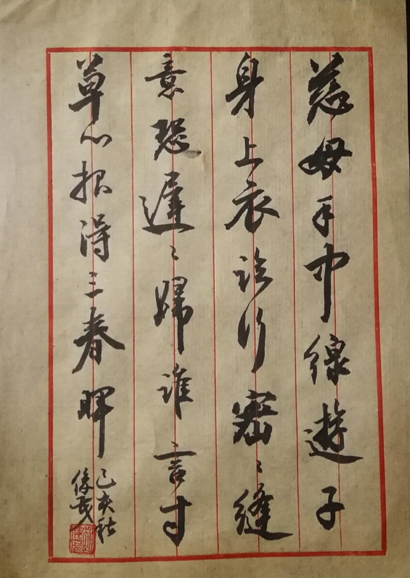 慈母手中線遊子
身上衣臨行密〻縫
意恐遲〻歸誰言寸
草心報得三春暉
己亥秋